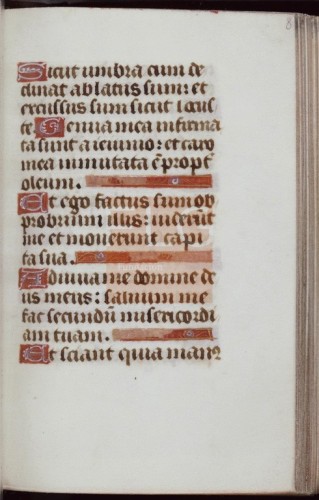 8
Sicut umbra cum de
clinat ablatus sum: et
excussus sum sicut locus
te. Genua mea infirma
ta sunt a ieiunio: et caro
mea inmutata e͂ propt͛
oleum.
Et ego factus sum ob
probrium illis: viderūt
me et moverunt capi
ta sua.
Adiuva me domine de
us meus: salvum me
fac secundū misericordi
am tuam.
Et sciant quia manꝰ